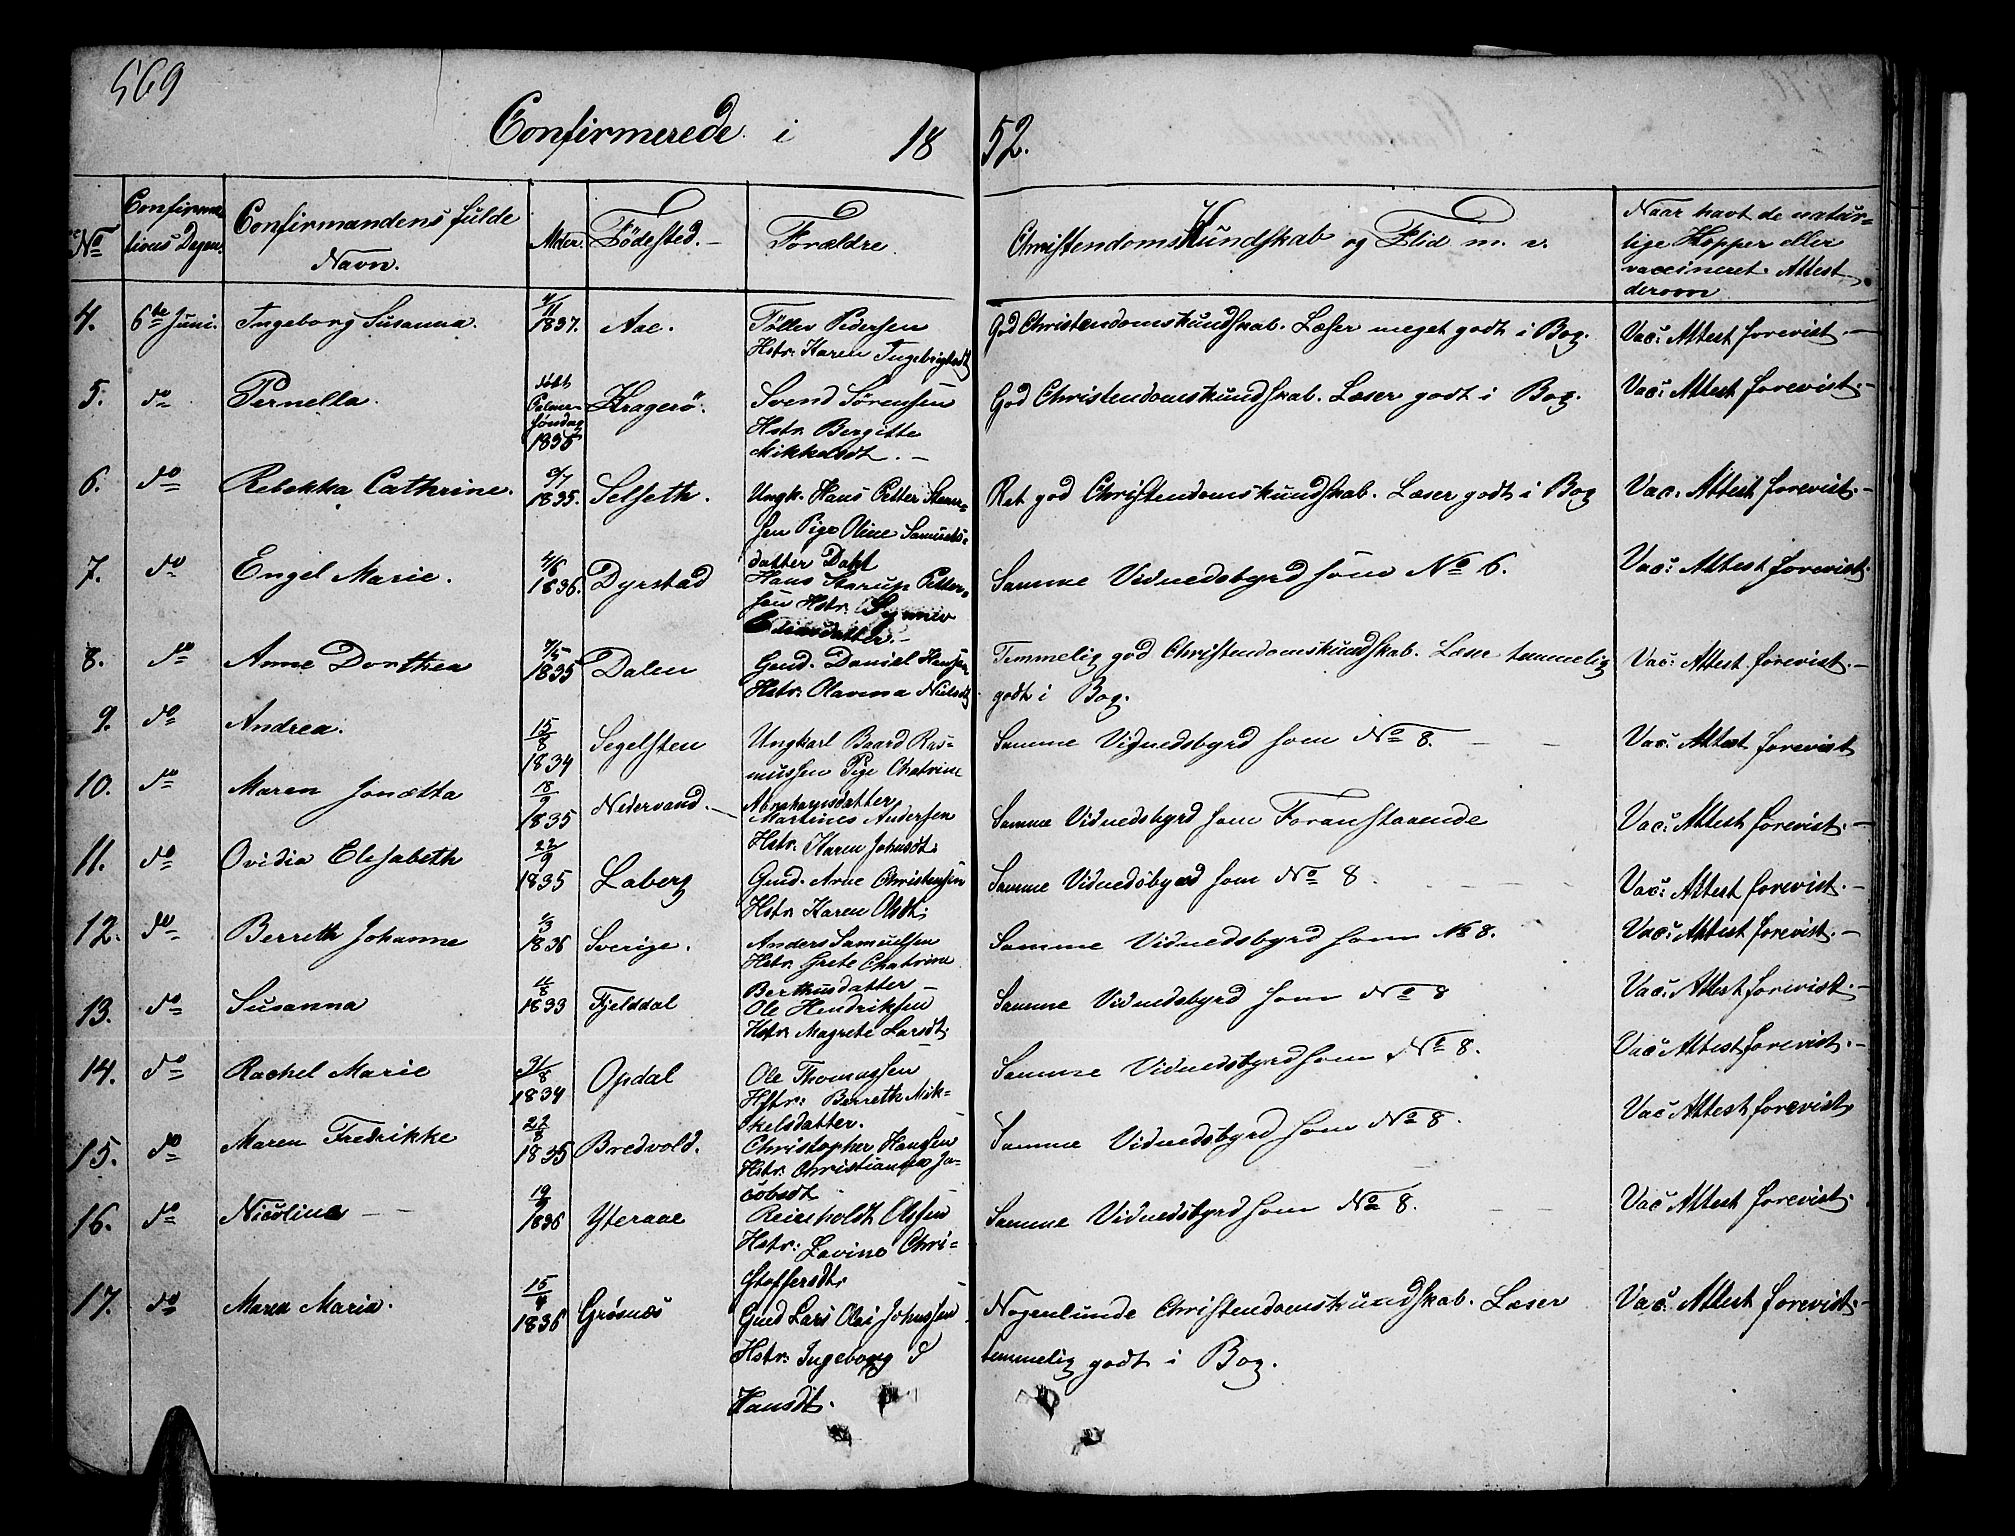 569
Confirmerede i 18 52.
No
Confirma
tions Dagen.
Confirmandens fulde
Navn.
Alder.
Födested.
Forældre.
Christendoms Kundskab og Flid m. v.
Naar havt de natur-
lige Kopper eller
vaccineret. Attest
derom
4. 6te Juni. Ingeborg Susanna. 1837. Aae. Töller Pedersen God Christendomskundskab. Læser meget godt i Bog. Vac: Attest forevist.
Hstr. Karen Ingebrigtsdt
5. do Pernella. döbt Palme- söndag 1835 Kragerö. Svend Sörensen God Christendomskundskab. Læser godt i Bog. Vac: Attest forevist.
Hstr. Bergitte
Mikkelsdt.
6. do Rebekka Cathrine. 1835. Selseth. Ungk. Hans Petter Ret god Christendomskundskab. Læser godt i Bog Vac: Attest forevist.
sen Pige Oline Samuels-
datter
7. do Engel Marie. 4/6 1836. Dyrstad Hans Petter- Samme Vidnedsbyrd som No 6. Vac: Attest forevist.
sen Hstr.
8. do Anne Dorthea 7/5 1835 Dalen Gmd. Daniel Hansen Temmelig god Christendomskundskab. Læser temmelig Vac: Attest forevist.
Hstr. Olavina Nielsdt godt i Bog.
9. do Andrea. 15/8 1834 Segelsten Ungkarl Baard Ras- Samme Vidnedsbyrd som No 8. Vac: Attest forevist
mussen Pige Chatrine
Abrahamsdatter
10. do Maren Jonætta 18/9 1835 Nedervand. Martines Andersen Samme Vidnedsbyrd som Foranstaaende Vac: Attest forevist.
Hstr. Karen Johnsdt:
11. do Ovidia Elisabeth 22/9 1835 Laberg Gmd. Arne Christensen Samme Vidnedsbyrd som No 8. Vac: Attest forevist.
Hstr. Karen Olsdt:
12. do Berreth Johanne 1/3 1836 Sverige. Anders Samuelsen Samme Vidnedsbyrd som No 8. Vac: Attest forevist.
Hstr. Grete Chatrine
Berthusdatter
13. do Susanna 1833 Fjelddal Ole Hendriksen Samme Vidnedsbyrd som No 8 Vac: Attest forevist.
Hstr. Magrete Larsdt.
14. do Rachel Marie 31/8 1834 Opdal Ole Thomassen Samme Vidnedsbyrd som No 8. Vac: Attest forevist.
Hstr: Berreth Mik-
kelsdatter.
15. do Maren Fredrikke 22/8 1835 Bredvold. Christopher Hansen Samme Vidnedsbyrd som No 8. Vac Attest forevist
Hstr. Christianna Ja-
cobsdt
16. do Nicolina 19/9 1836 Yteraae Reinholdt Olssen Samme Vidnedsbyrd som No 8. Vac Attest forevist.
Hstr: Lavine Chri-
stoffersdt.
17. do Maren Maria. 15/4 1836 Grøsnæs Gmd Lars Olai Johnssen Nogenlunde Christendomskundskab. Læser Vac. Attest forevist.
Hstr: Ingeborg temmelig godt i Bog.
Hansdt.